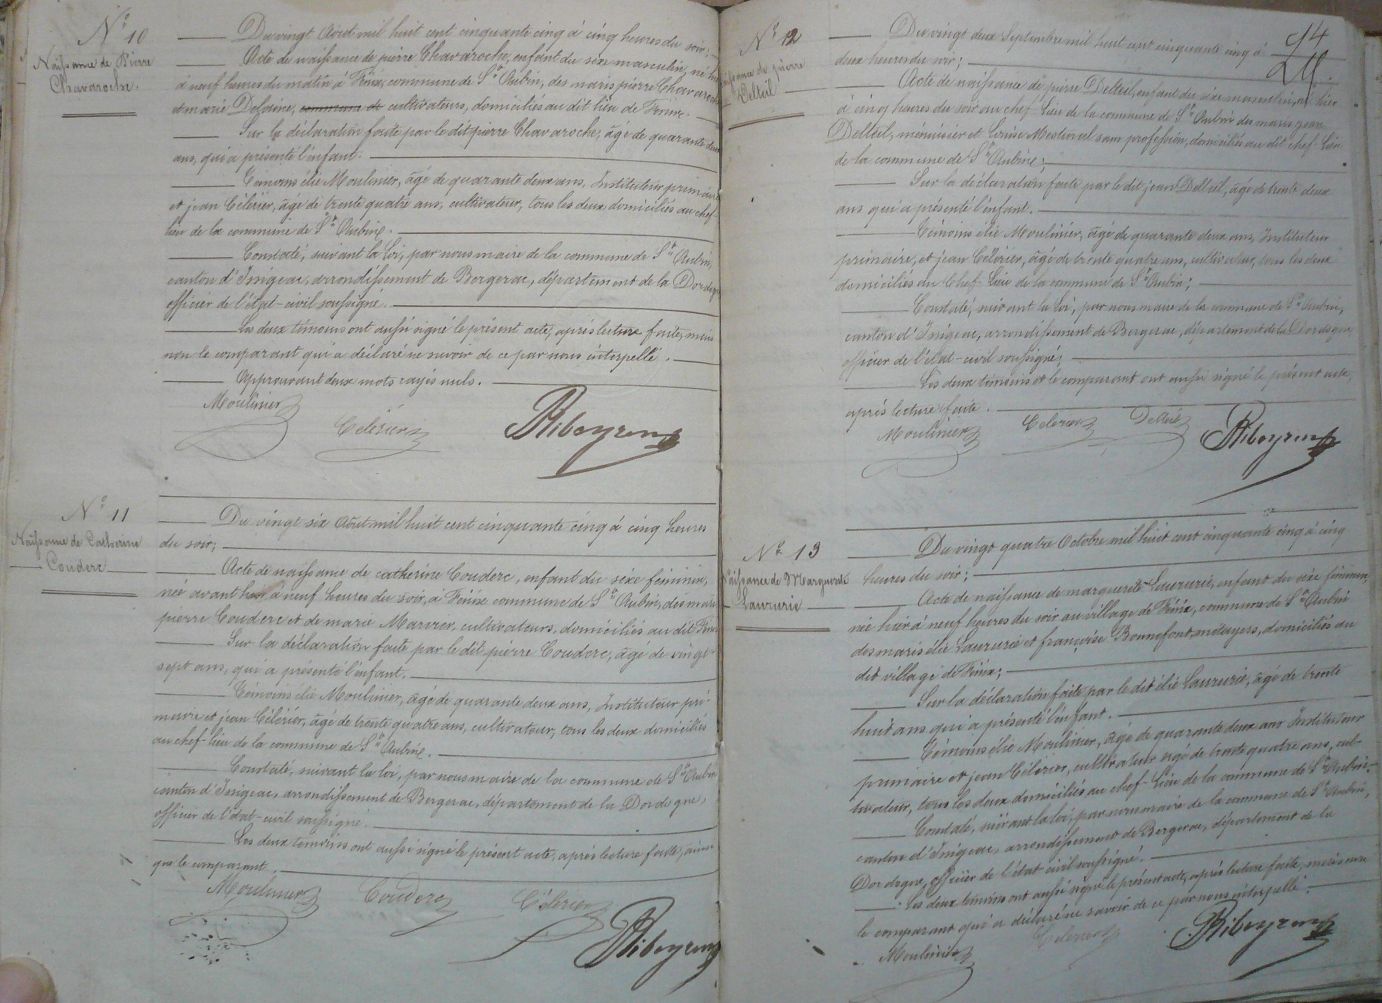 N° 10
Naissance de Pierre
Chavaroche.
Du vingt Août mil huit cent cinquante cinq à cinq heures du soir;
Acte de naissance de pierre Chavaroche, enfant du sexe masculin, né
à neuf heures du matin à Fénix, commune de St Aubin, des mariés pierre Chavaroche
et marie Delpeine, commune de cultivateurs, domiciliés au dit lieu de Fénix.
Sur la déclaration faite par le dit pierre Chavaroche, âgé de quarante deux
ans, qui a présenté l'enfant.
Témoins élie Moulinier, âgé de quarante deux ans, Instituteur primaire
et jean Célérier, âgé de trente quatre ans, cultivateur, tous les deux domiciliés au chef
lieu de la commune de St Aubin.
Constaté, suivant la loi, par nous maire de la commune de St Aubin,
canton d'Issigeac, arrondissement de Bergerac, département de la Dordogne
officier de l'état-civil soussigné.
Les deux témoins ont aussi signé le présent acte, après lecture faite, mais
non le comparant qui a déclaré ne savoir de ce par nous interpellé.
Approuvant deux mots rayés nuls.
Moulinier
Célérier
Ribeyren
N° 11
Naissance de Catherine
Couderc
Du vingt six Août mil huit cent cinquante cinq à cinq heures
du soir;
Acte de naissance de catherine Couderc, enfant du sexe féminin,
née avant hier à neuf heures du soir, à Fénix commune de St Aubin, des mariés
pierre Couderc et de marie Marvier, cultivateurs, domiciliés au dit Fénix
Sur la déclaration faite par le dit pierre Couderc, âgé de vingt-
sept ans, qui a présenté l'enfant.
Témoins élie Moulinier, âgé de quarante deux ans, Instituteur pri-
maire et jean Célérier, âgé de trente quatre ans, cultivateur, tous les deux domiciliés
au chef-lieu de la commune de St Aubin.
Constaté, suivant la loi, par nous maire de la commune de St Aubin
canton d'Issigeac, arrondissement de Bergerac, département de la Dordogne,
officier de l'état-civil soussigné.
Les deux témoins ont aussi signé le présent acte, après lecture faite, ainsi
que le comparant.
Moulinier
Couderc
Célérier
Ribeyren
N° 12
Naissance de pierre
Delteil
24
Du vingt deux Septembre mil huit cent cinquante cinq à
deux heures du soir;
Acte de naissance de pierre Delteil, enfant du sexe masculin, né hier
à cinq heures du soir au chef-lieu de la commune de St Aubin des mariés jean
Delteil, menuisier et sans profession, domiciliés au dit chef-lieu
de la commune de St Aubin;
Sur la déclaration faite par le dit jean Delteil, âgé de trente deux
ans qui a présenté l'enfant.
Témoins élie Moulinier, âgé de quarante deux ans, Instituteur
primaire, et jean Célérier, âgé de trente quatre ans, cultivateur, tous les deux
domiciliés au Chef-Lieu de la commune de St Aubin;
Constaté, suivant la loi, par nous maire de la commune de St Aubin,
canton d'Issigeac, arrondissement de Bergerac, département de la Dordogne,
officier de l'état-civil soussigné;
Les deux témoins et le comparant ont aussi signé le présent acte,
après lecture faite.
Moulinier
Célérier
Delteil
Ribeyren
N° 13
Naissance de Marguerite
Laururie
Du vingt quatre Octobre mil huit cent cinquante cinq à cinq
heures du soir;
Acte de naissance de marguerite Laururie, enfant du sexe féminin,
née hier à neuf heures du soir au village de Fénix, commune de St Aubin
des mariés élie Laururie et françoise Bonnefont métayers, domiciliés au
dit village de Fénix;
Sur la déclaration faite par le dit élie Laururie, âgé de trente
huit ans qui a présenté l'enfant.
Témoins élie Moulinier, âgé de quarante deux ans Instituteur
primaire et jean Célérier, cultivateur âgé de trente quatre ans, cul-
tivateur, tous les deux domiciliés au chef-lieu de la commune de St Aubin.
Constaté, suivant la loi, par nous maire de la commune de St Aubin,
canton d'Issigeac, arrondissement de Bergerac, département de la
Dordogne, officier de l'état civil soussigné.
Les deux témoins ont aussi signé le présent acte, après lecture faite, mais non
le comparant qui a déclaré ne savoir de ce par nous interpellé.
Moulinier
Célérier
Ribeyren